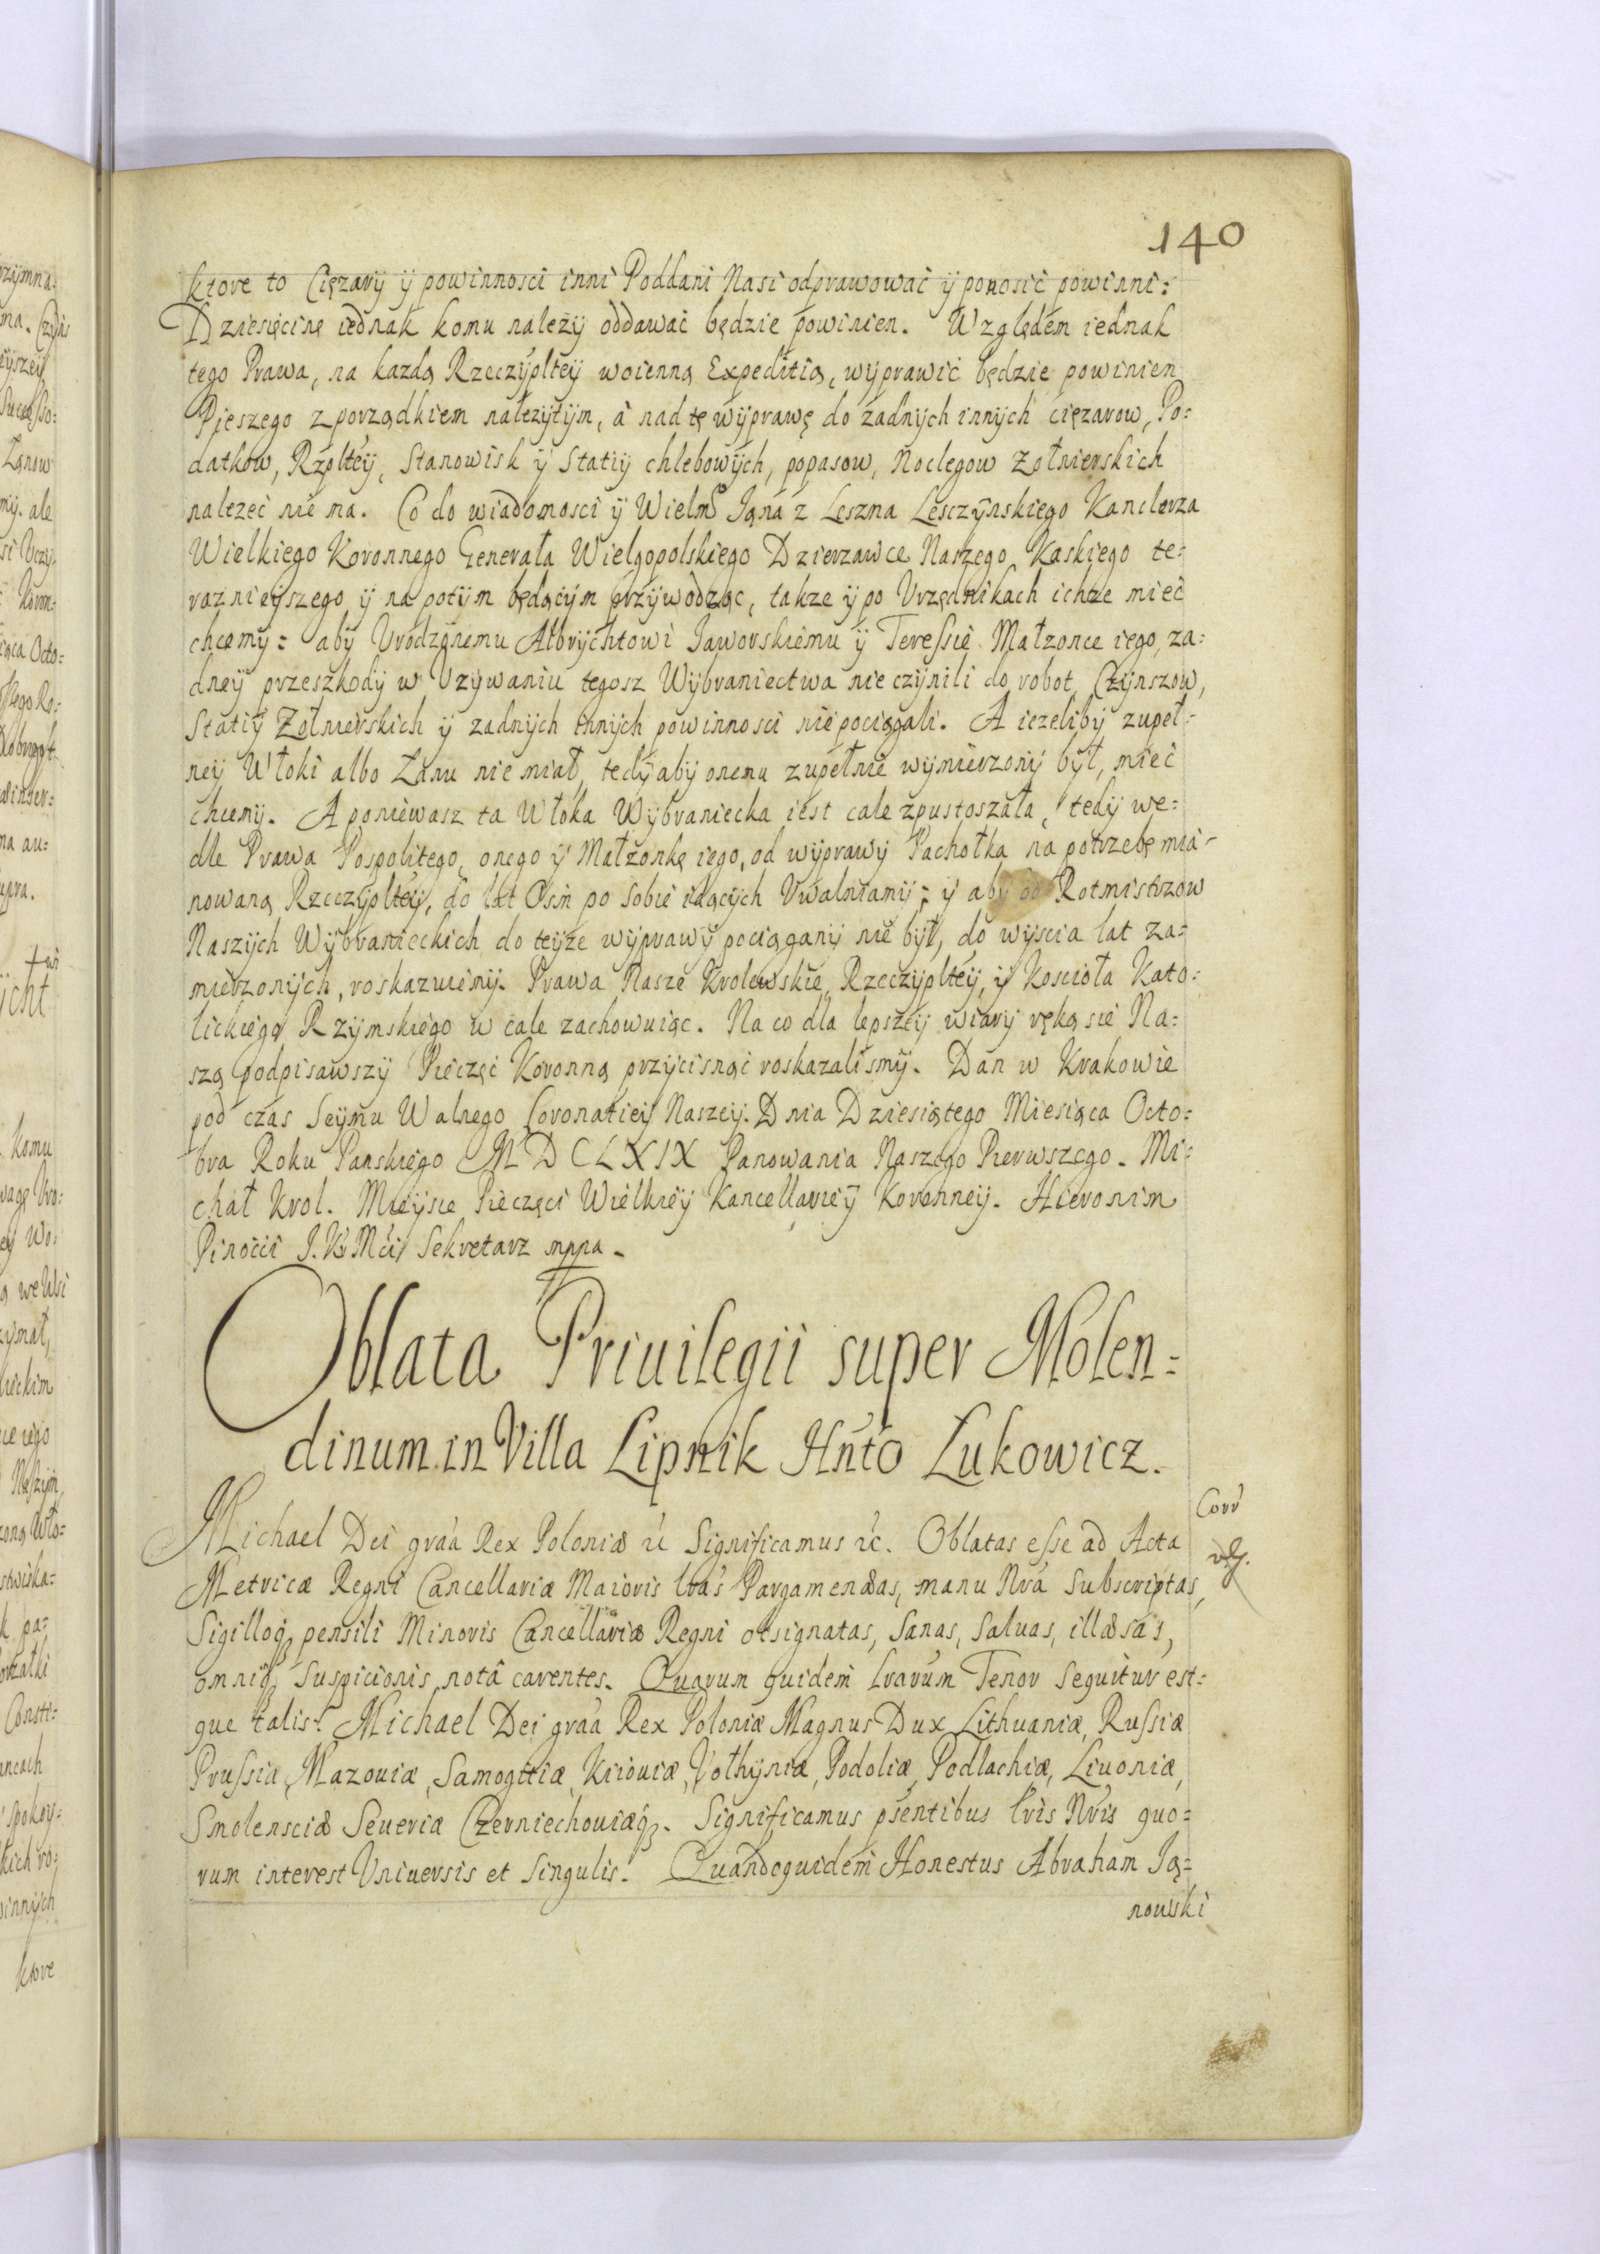 140
ktore to Ciężary ÿ powinnosci inni Poddani Nasi odprawować ÿ ponosić powinni:
Dziesięcinę iednak komu należÿ oddawać będzie powinien. Względem iednak
tego Prawa, na każdą Rzeczÿpltey woienną Expeditią, wÿprawić będzie powinien
Pieszego z porządkiem należÿtÿm, á nad tę wÿprawę do żadnÿch innÿch ciężarow, Po=
datkow, Rzpltey, Stanowisk ÿ Statiÿ chlebowÿch, popasow, Noclegow Zołnierskich
nalezeć nie ma. Co do wiadomosci ÿ Wielmo Jana z Leszna Lesczÿnskiego Kanclerza
Wielkiego Koronnego Generała Wielgopolskiego Dzierzawce Naszego Kaskiego te=
raznieÿszego ÿ na potÿm będącÿm przÿwodząc, takze ÿ po Vrzędnikach ichże mieć
chcemÿ: abÿ Vrodzonemu Albrÿchtowi Jaworskiemu ÿ Teressie Małzonce iego, za=
dneÿ przeszkodÿ w Vzÿwaniu tegosz Wÿbraniectwa nie czÿnili do robot, Czÿnszow,
Statiÿ Zołnierskich ÿ zadnÿch innÿch powinnosci nie pociągali. A iezelibÿ zupeł=
neÿ Włoki albo Łanu nie miał, tedÿ abÿ onemu zupełnie wÿmierzonÿ bÿł, mieć
chcemÿ. A poniewasz ta Włoka Wÿbraniecka iest cale zpustoszała, tedÿ we=
dle Prawa Pospolitego, onego ÿ Małzonkę iego, od wÿprawÿ Pachołka na potrzebę mia=
nowaną Rzeczÿpltey, do lat Osm po sobie idącÿch Vwalniamÿ; ÿ abÿ od Rotmistrzow
Naszÿch Wÿbranieckich do teÿże wÿprawÿ pociąganÿ nie bÿł, do wÿscia lat za=
mierzonÿch, roskazuiemÿ. Prawa Nasze Krolewskie, Rzeczÿpltey, ÿ Kościoła Kato=
lickiego Rzÿmskiego w cale zachowuiąc. Na co dla lepszeÿ wiarÿ ręką się Na=
szą podpisawszÿ Pieczęć Koronną przÿcisnąć roskazalismÿ. Dan w Krakowie
pod czas Seÿmu Walnego Coronatieÿ Naszeÿ. Dnia Dziesiątego Miesiąca Octo=
bra Roku Panskiego MDCLXIX Panowania Naszego Pierwszego. Mi=
chał Krol. Mieÿsce Pieczęci Wielkieÿ Kancellarieÿ Koronneÿ. Hieronim
Pinocci J. K. Mći Sekretarz mppa.
Oblata Priuilegii super Molen=
dinum in Villa Lipnik Hnto Lukowicz.
Corr
Michael Dei graa Rex Poloniæ &c Significamus &c. Oblatas esse ad Acta
Metricæ Regni Cancellariæ Maioris lras Pargameneas, manu Nra Subscriptas,
Sigilloq; pensili Minoris Cancellariæ Regni obsignatas, Sanas, Saluas, illæsas,
omniq; Suspicionis notâ carentes. Quarum quidem lrarum Tenor Sequitur est=
que talis: Michael Dei graa Rex Poloniæ Magnus Dux Lithuaniæ, Russiæ
Prussiæ, Mazouiæ, Samogitiæ, Kiiouiæ, Volhÿniæ, Podoliæ, Podlachiæ, Liuoniæ,
Smolensciæ Seueriæ Czerniechouiæq;. Significamus psentibus lris Nris quo=
rum interest Vniuersis et Singulis. Quandoquidem Honestus Abraham Ja=
nowski